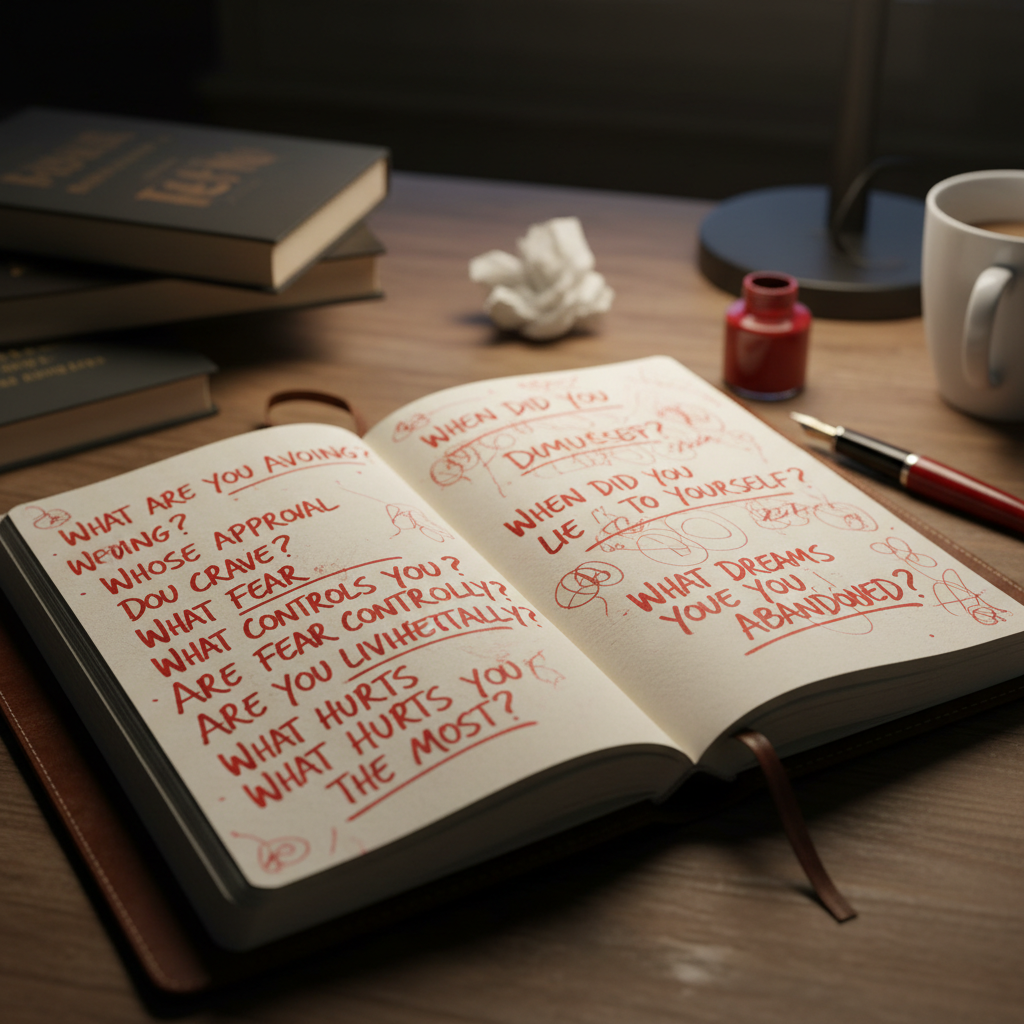 WHAT ARE YOU AVOING?
WEDING?
WHOSE APPROIAL
DOU CRAVE?
WHAT FEAR
WHAT CONTROLS YOU?
ARE FEAR CONTROLLY?
ARE YOU LIVIHETTALLY?
WHAT HURTS
WHAT HURTS YOU
THE MOST?
WHEN DID YOU
DUMUSSEF?
WHEN DID YOU
LIE TO YOURSELF?
WHAT DREAMS
YOUE YOU
ABANDONED?